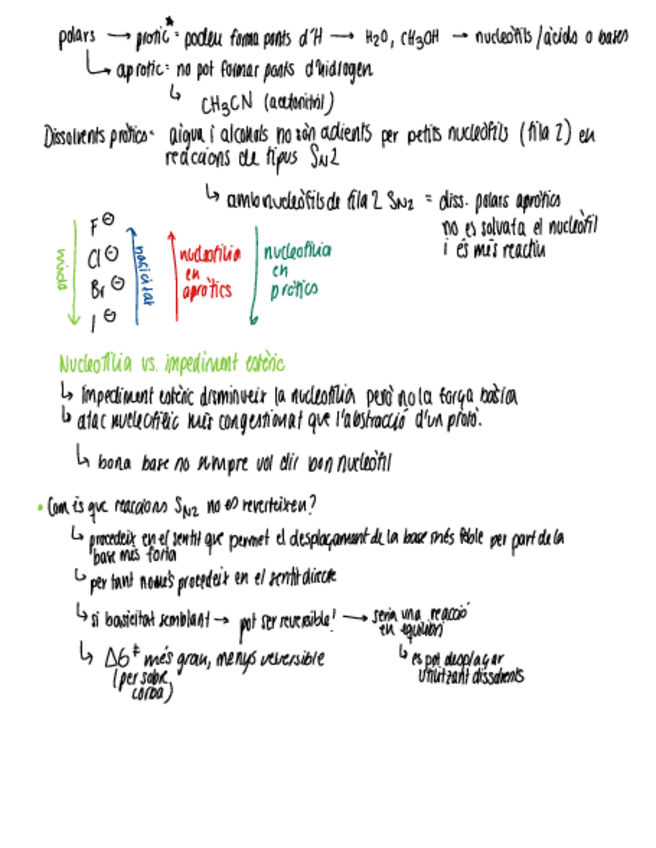 polars → pròtic* = podeu forma ponts d'H → H2O, CH3OH → nucleòfils/àcids o bases
↳ apròtic = no pot formar ponts d'hidrogen
↳ CH3CN (acetonitril)
Dissolvents pròtics = aigua i alcohols no són adients per petits nucleòfils (fila 2) en
reaccions de tipus SN2
↳ amb nucleòfils de fila 2 SN2 = diss. polars apròtics
no es solvata el nucleòfil
i és més reactiu
F⊖
Cl⊖
Br⊖
I⊖
mida
basicitat
nucleofilia
en
apròtics
nucleofilia
en
pròtics
Nucleofília vs. impediment estèric
↳ impediment estèric disminueix la nucleofilia però no la força bàsica
↳ atac nucleofílic més congestionat que l'abstracció d'un protó.
↳ bona base no sempre vol dir bon nucleòfil
• Com és que reaccions SN2 no es reverteixen?
↳ procedeix en el sentit que permet el desplaçament de la base més feble per part de la
base més forta
↳ per tant només procedeix en el sentit directe
↳ si basicitat semblant → pot ser reversible! → seria una reacció
en equilibri
↳ es pot desplaçar
utilitzant dissolvents
↳ ΔG‡ més gran, menys reversible
(per sobre
corba)